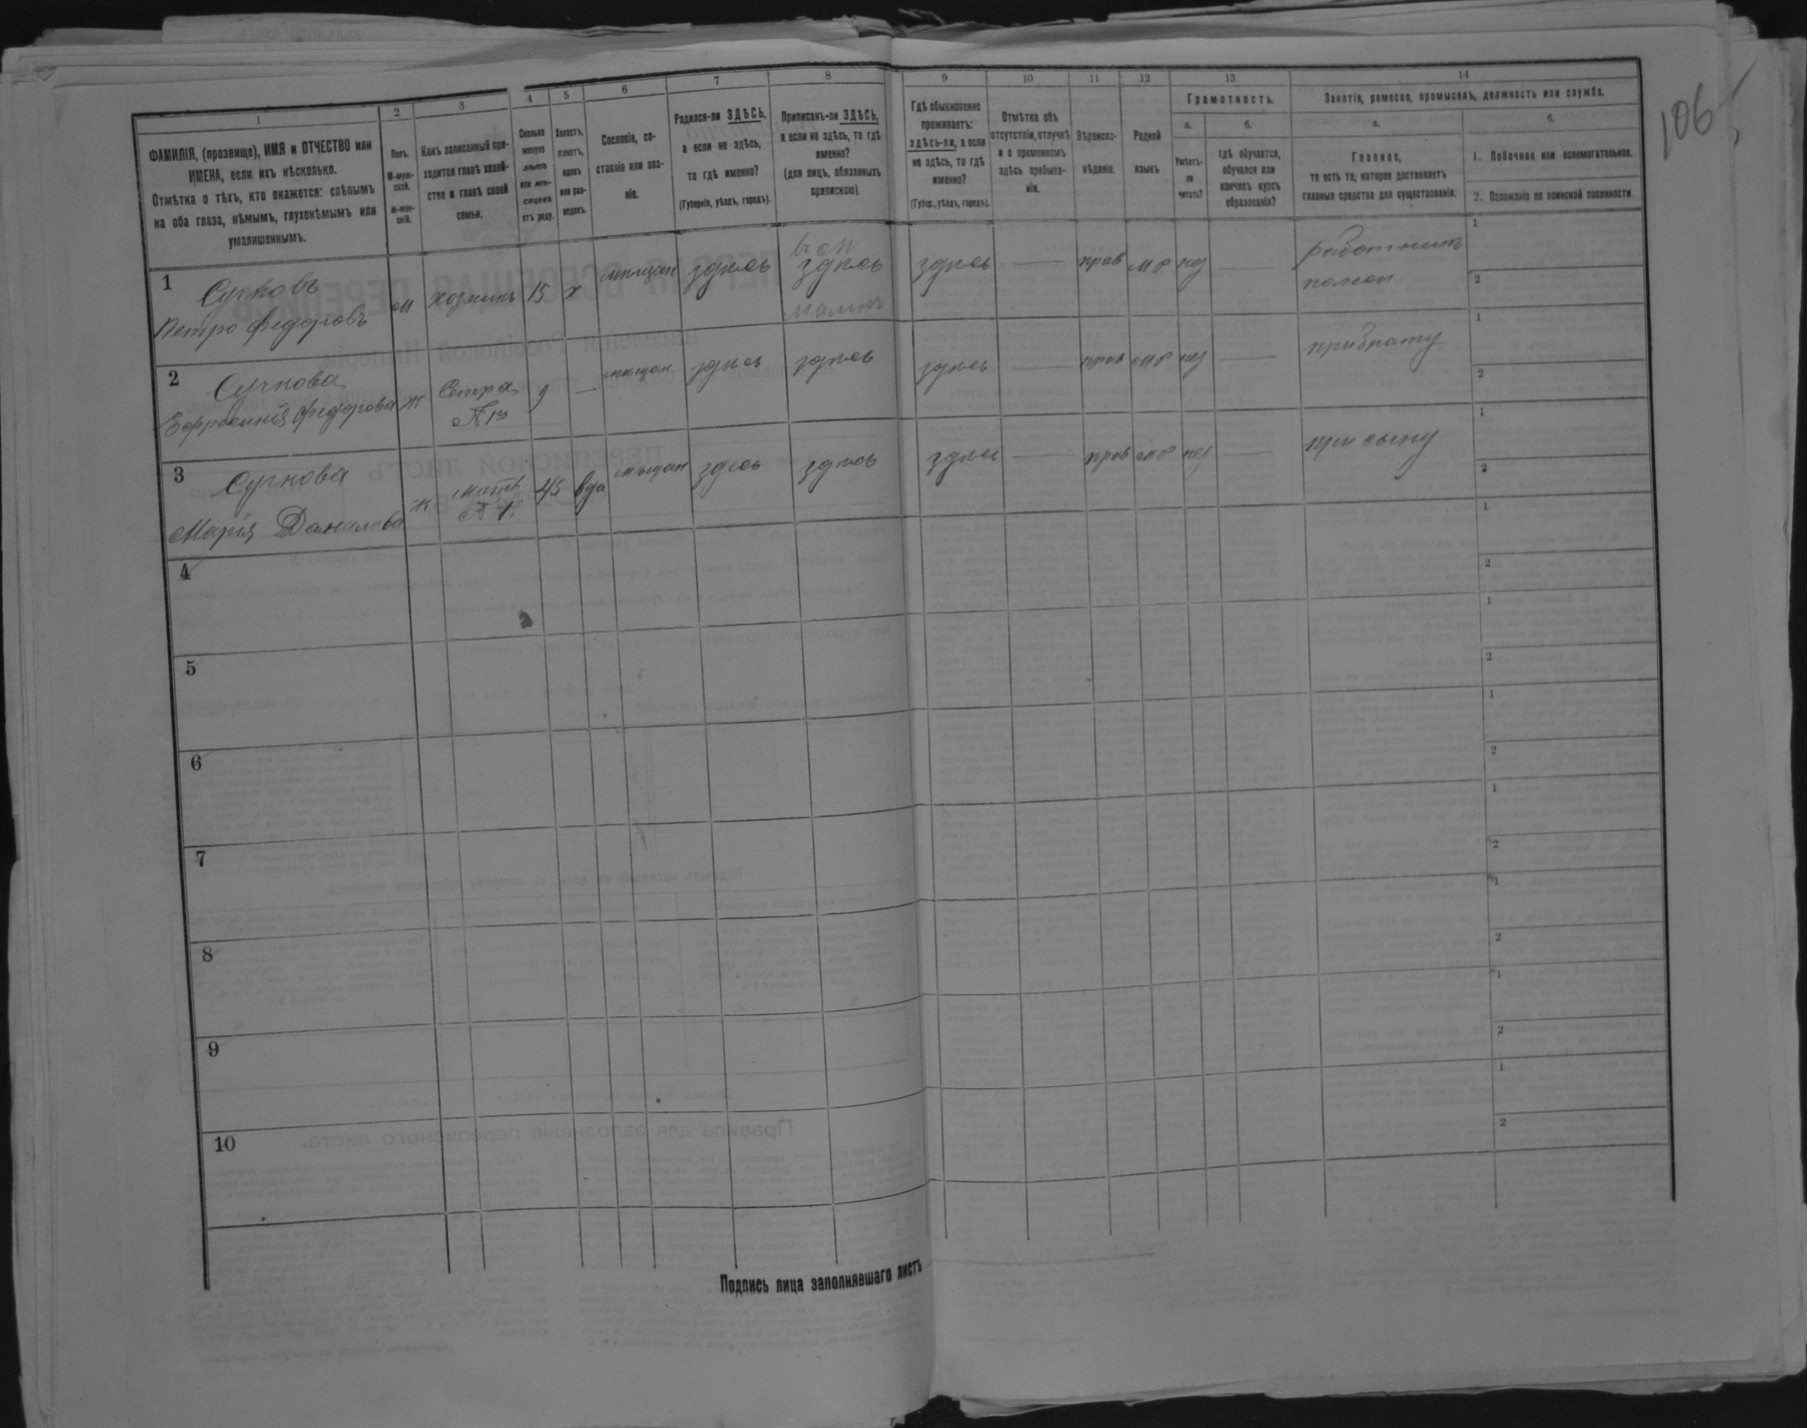 106
1 2 3 4 5 6 7 8 9 10 11 12 13 14
ФАМИЛІЯ, (прозвище), ИМЯ и ОТЧЕСТВО или
ИМЕНА, если ихъ нѣсколько.
Отмѣтка о тѣхъ, кто окажется: слѣпымъ
на оба глаза, нѣмымъ, глухонѣмымъ или
умалишеннымъ.
Полъ.
М-муж-
ской.
Ж-жен-
скій.
Какъ записанный при-
ходится главѣ хозяй-
ства и главѣ своей
семьи.
Сколько
минуло
лѣтъ
или мѣ-
сяцевъ
отъ роду.
Холостъ,
женатъ,
вдовъ
или раз-
веденъ.
Сословіе, со-
стояніе или зва-
ніе.
Родился-ли ЗДѢСЬ,
а если не здѣсь,
то гдѣ именно?
(Губернія, уѣздъ, городъ).
Приписанъ-ли ЗДѢСЬ,
а если не здѣсь, то гдѣ
именно?
(для лицъ, обязанныхъ
припискою).
Гдѣ обыкновенно
проживаетъ:
здѣсь-ли, а если
не здѣсь, то гдѣ
именно?
(Губер., уѣздъ, городъ).
Отмѣтка объ
отсутствіи, отлучкѣ
и о временномъ
здѣсь пребыва-
ніи.
Вѣроиспо-
вѣданіе.
Родной
языкъ
Грамотность.
а.
Умѣетъ-
ли
читать?
б.
гдѣ обучается,
обучался или
кончилъ курсъ
образованія?
Занятіе, ремесло, промыселъ, должность или служба.
а.
Главное,
то есть то, которое доставляетъ
главныя средства для существованія.
б.
1. Побочное или вспомогательное.
2. Положеніе по воинской повинности.
1
Петро Федоровъ м хозяинъ 15 х мещан здесь здесь здесь — прав мр — 1 2
2
Федорова ж — мещан здесь здесь здесь — прав мр — при брату 1 2
3
Марія Данилова ж мать 45 вда мещан здесь здесь здесь — прав мр — при сыну 1 2
4 1 2
5 1 2
6 1 2
7 1 2
8 1 2
9 1 2
10 1 2
Подпись лица заполнявшаго листъ